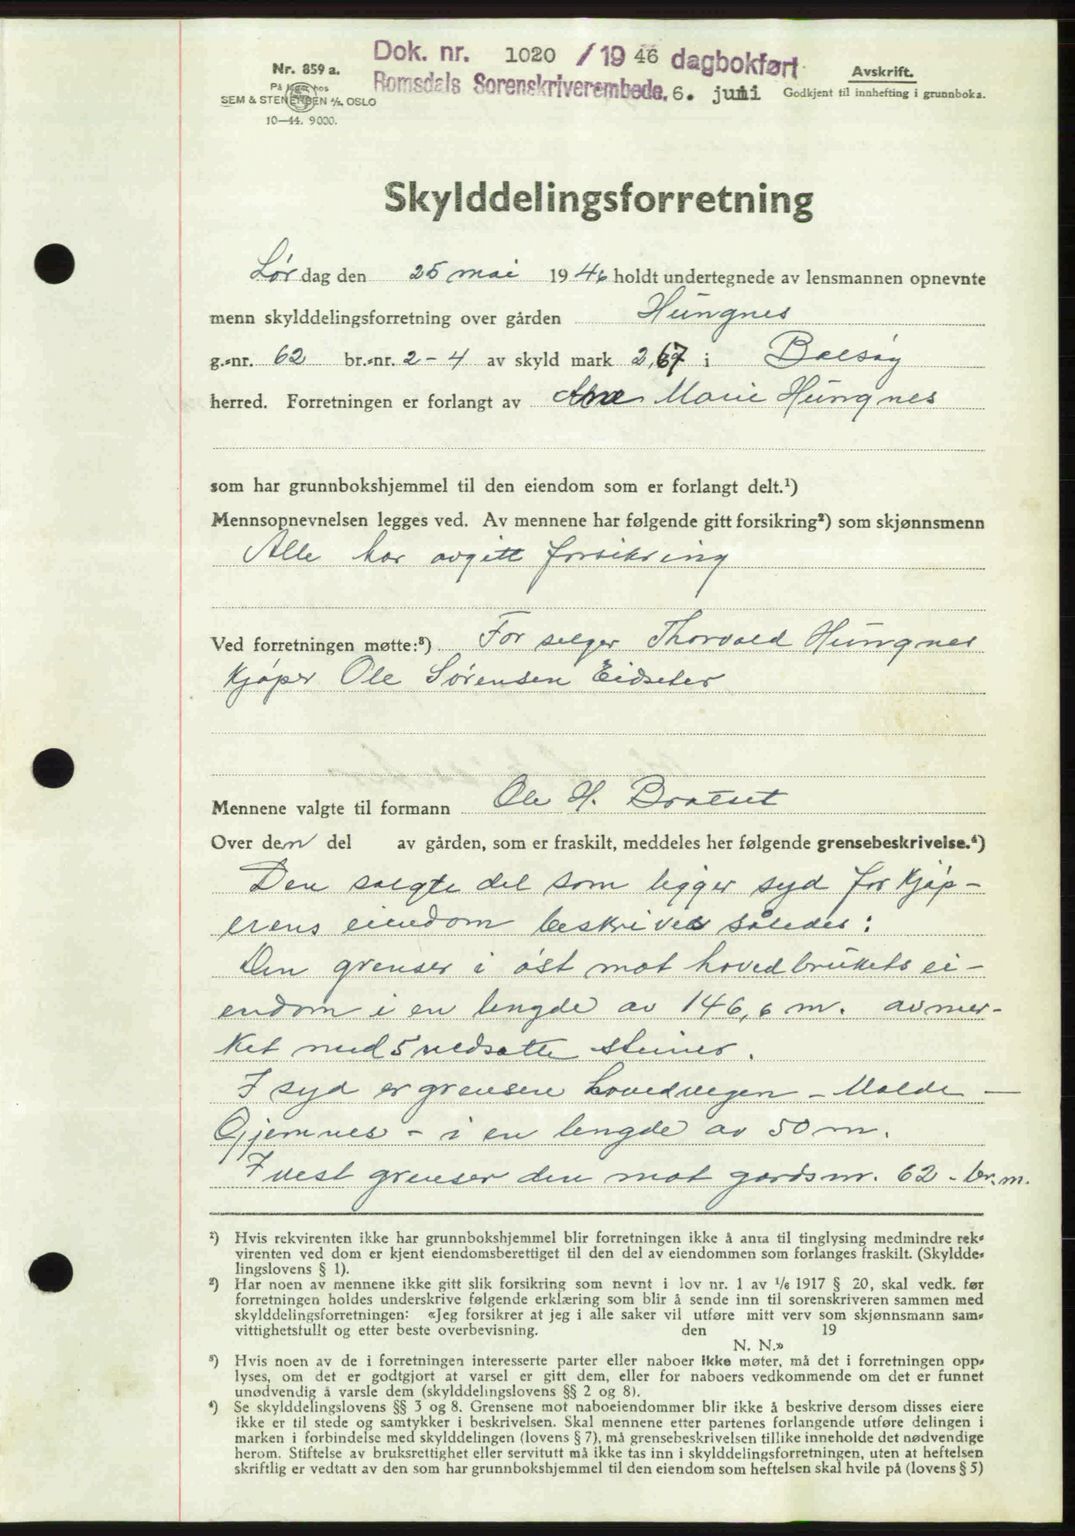 Dok. nr. 1020 / 1946 dagbokført
Romsdals Sorenskriverembede, 6. juni
Nr. 859 a.
På lager hos
SEM & STENERSEN A/S, OSLO
10—44. 9000.
Avskrift.
Godkjent til innhefting i grunnboka.
Skylddelingsforretning
Lør dag den 25 mai 1946 holdt undertegnede av lensmannen opnevnte
menn skylddelingsforretning over gården Hungnes
g.-nr. 62 br.-nr. 2-4 av skyld mark 2,67 i Bolsøy
herred. Forretningen er forlangt av Ane Marie Hungnes
som har grunnbokshjemmel til den eiendom som er forlangt delt.¹)
Mennsopnevnelsen legges ved. Av mennene har følgende gitt forsikring²) som skjønnsmenn
Alle har avgitt forsikring
Ved forretningen møtte:³) For selger Thorvald Hungnes
Kjøper Ole Sørensen Eidseter
Mennene valgte til formann Ole H. Bratset
Over den del av gården, som er fraskilt, meddeles her følgende grensebeskrivelse.⁴)
Den solgte del som ligger syd for Kjøp-
erens eiendom beskrives således:
Den grenser i øst mot hovedbrukets ei-
endom i en lengde av 146,6 m. avmer-
ket med 5 nedsatte steiner.
I syd er grensen hovedvegen – Molde –
Gjemnes – i en lengde av 50 m.
I vest grenser den mot gardsnr. 62 - br.nr.
¹) Hvis rekvirenten ikke har grunnbokshjemmel blir forretningen ikke å anta til tinglysing medmindre rek-
virenten ved dom er kjent eiendomsberettiget til den del av eiendommen som forlanges fraskilt. (Skyldde-
lingslovens § 1).
²) Har noen av mennene ikke gitt slik forsikring som nevnt i lov nr. 1 av 1/6 1917 § 20, skal vedk. før
forretningen holdes underskrive følgende erklæring som blir å sende inn til sorenskriveren sammen med
skylddelingsforretningen: «Jeg forsikrer at jeg i alle saker vil utføre mitt verv som skjønnsmann sam-
vittighetsfullt og etter beste overbevisning. den 19
N. N.»
³) Hvis noen av de i forretningen interesserte parter eller naboer ikke møter, må det i forretningen opp-
lyses, om det er godtgjort at varsel er gitt dem, eller for naboers vedkommende om det er funnet
unødvendig å varsle dem (skylddelingslovens §§ 2 og 8).
⁴) Se skylddelingslovens §§ 3 og 8. Grensene mot naboeiendommer blir ikke å beskrive dersom disses eiere
ikke er til stede og samtykker i beskrivelsen. Skal mennene etter partenes forlangende utføre delingen i
marken i forbindelse med skylddelingen (lovens § 7), må grensebeskrivelsen tillike inneholde det nødvendige
herom. Stiftelse av bruksrettighet eller servitutt må ikke tas inn i skylddelingsforretningen, uten at heftelsen
skriftlig er vedtatt av den som har grunnbokshjemmel til den eiendom som heftelsen skal hvile på (lovens § 5)